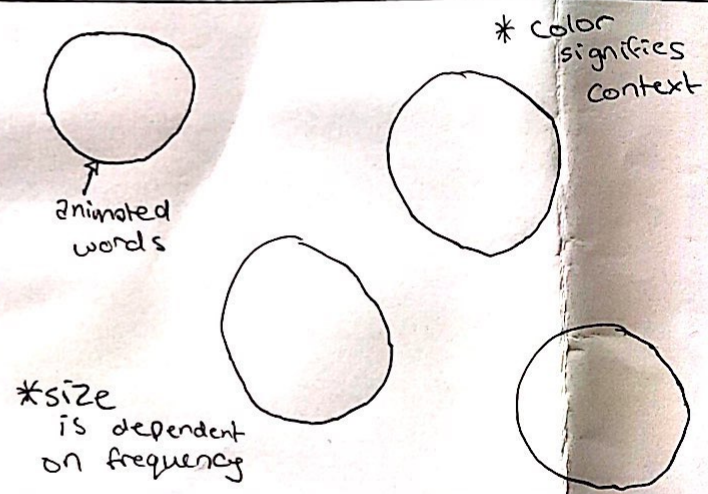 * color
signifies
context
animated
words
*size
is dependent
on frequency